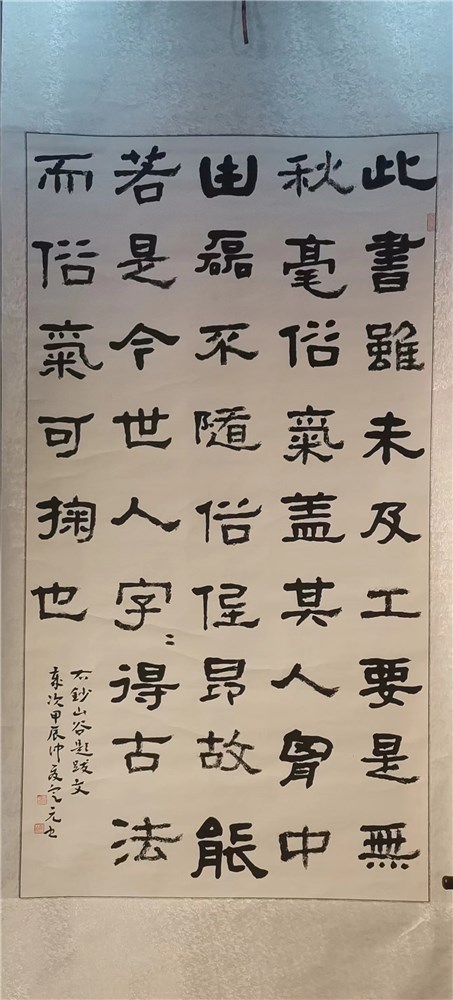 此書雖未及工要是無
秋毫俗氣盖其人胷中
凷磊不隨俗低昂故能
若是今世人字〻得古法
而俗氣可掬也
右鈔山谷題跋文
歲次甲辰仲夏元书